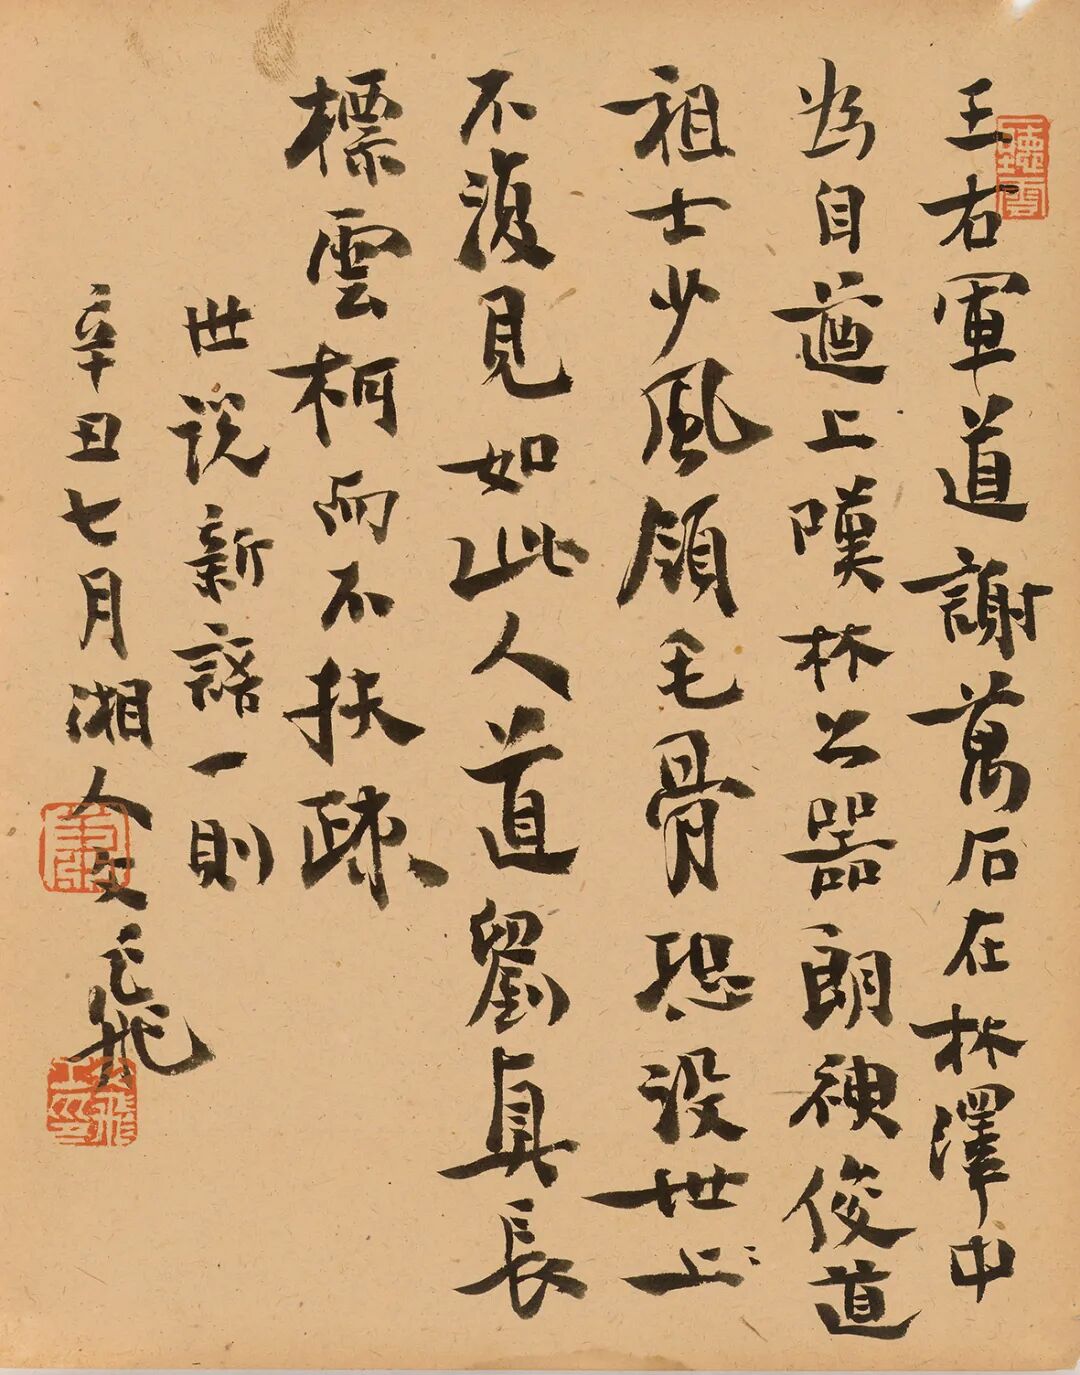 王右軍道謝萬石在林澤中
為自遒上嘆林公器朗神俊道
祖士少風領毛骨恐沒世上
不復見如此人道劉真長
標雲柯而不扶疎
世説新語一則
辛丑七月湘人
聽雲